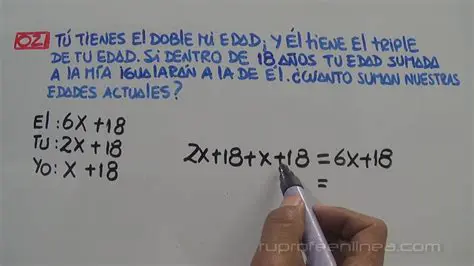 02 TÚ TIENES El DOBLE MI EDAD, Y Él TIENE El TRIPLE
DE TU EDAD. Si DENTRO DE 18 AÑOS TU EDAD SUMADA
A LA MÍA iGUALARÁN A LA DE Él. ¿CUÁNTO SUMAN NUESTRAS
EDADES ACTUALES?
El : 6x + 18
TU : 2x + 18
YO : x + 18
2x + 18 + x + 18 = 6x + 18
=
tuprofeenlinea.com